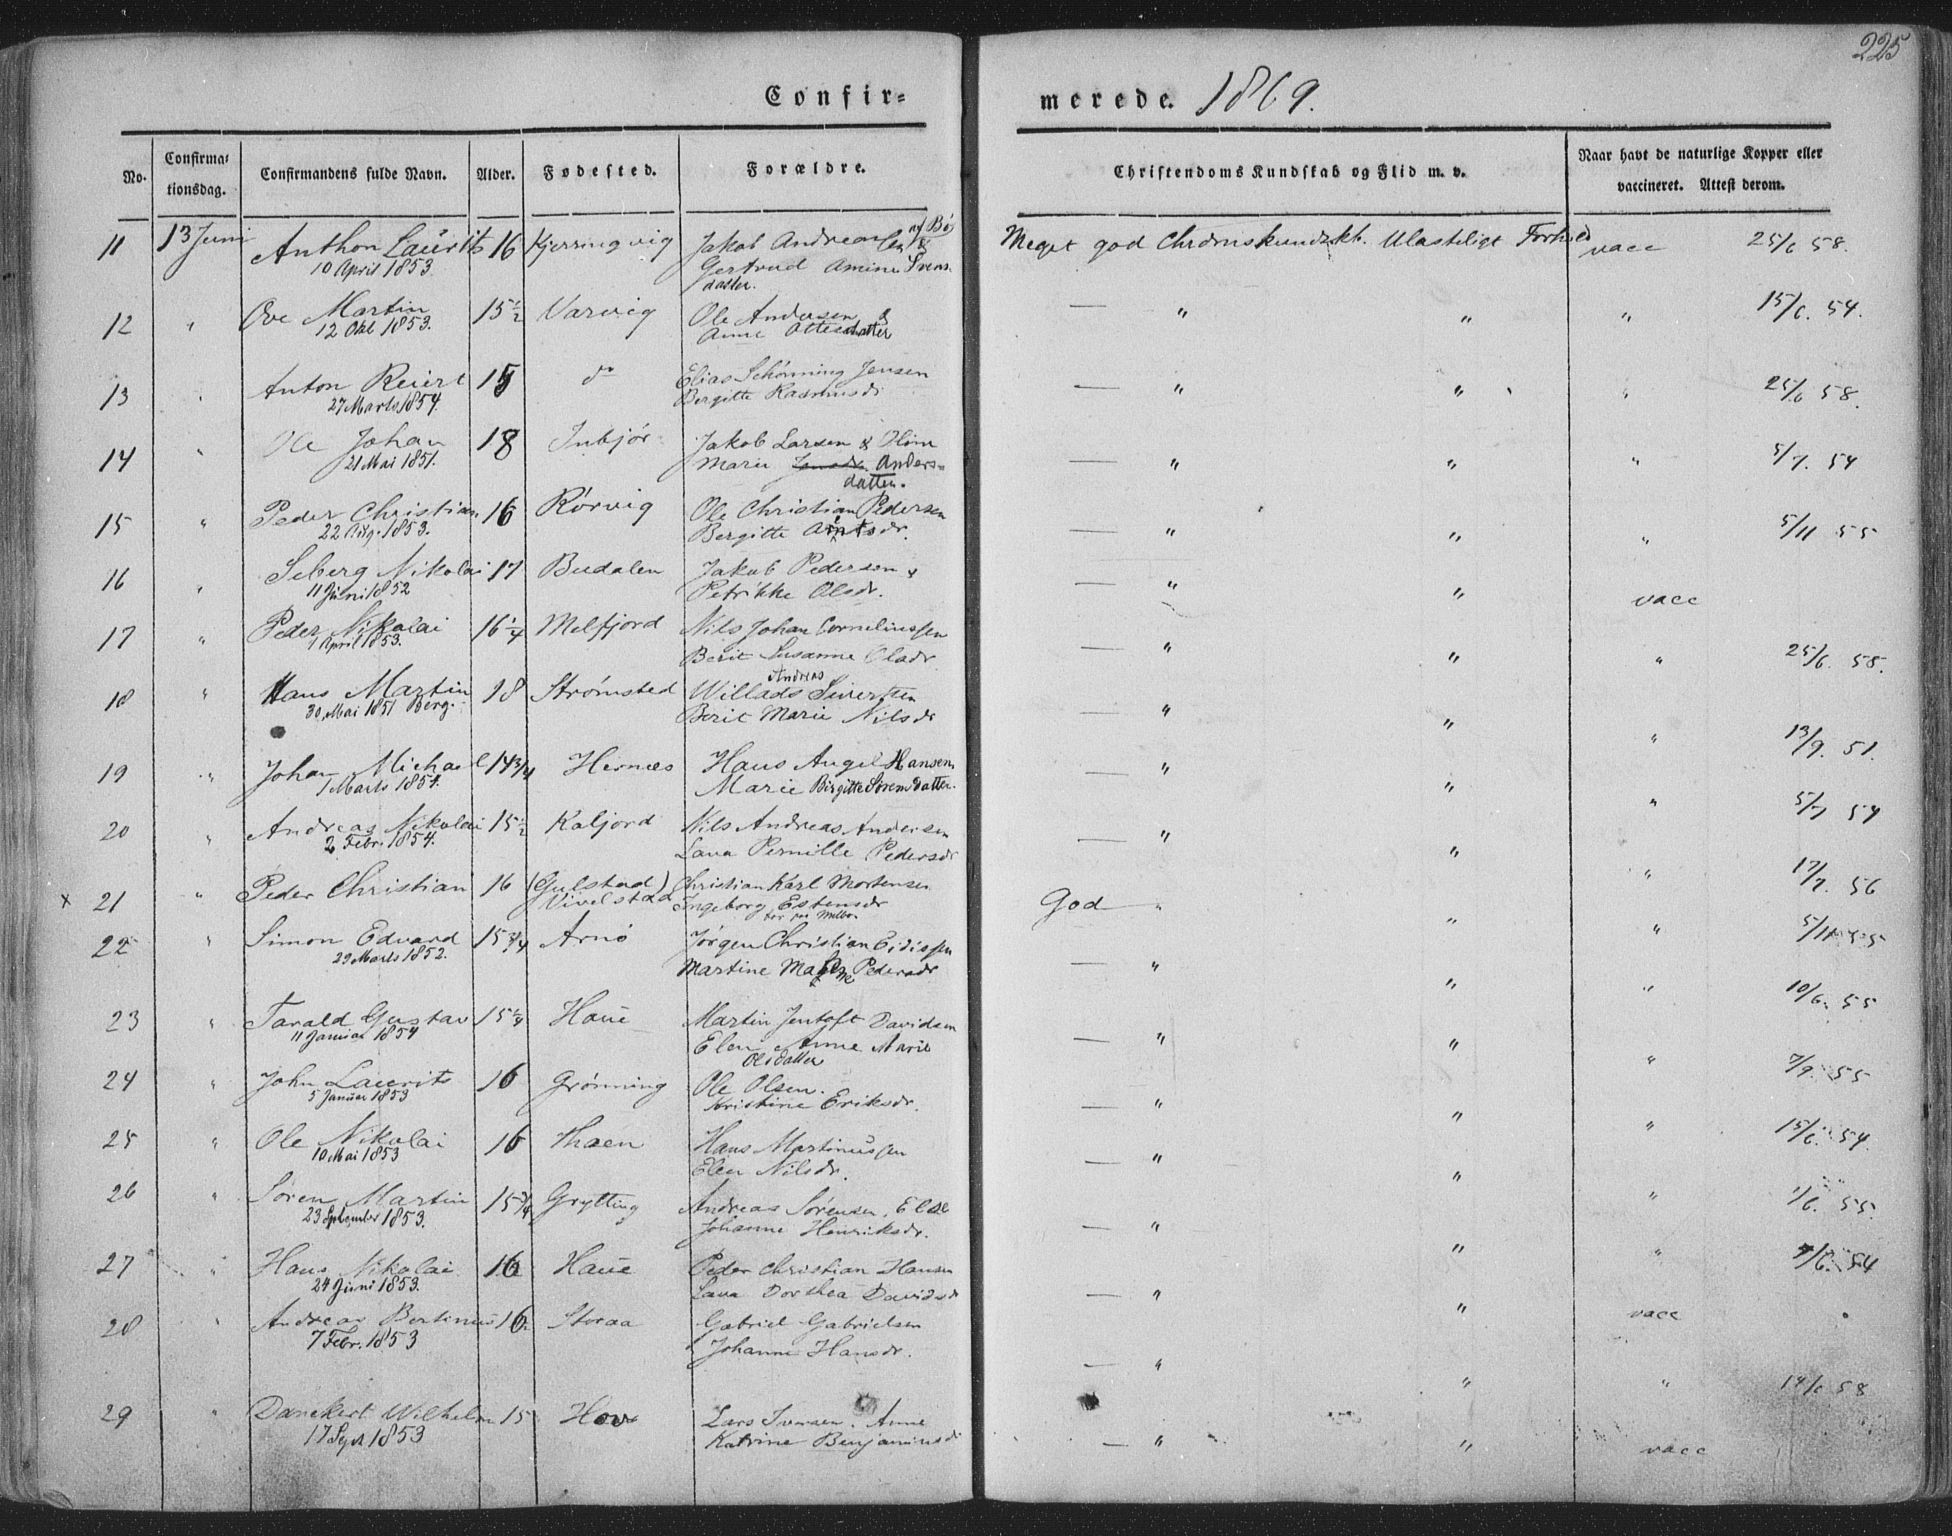 225
Confir- merede. 1869.
No. Confirma- tionsdag. Confirmandens fulde Navn. Alder. Fødested. Forældre. Christendoms Kundskab og Flid m. v. Naar havt de naturlige Kopper eller vaccineret. Attest derom.
11 13 Juni Anthon Laurits 16 Kjerringvig Jakob Andreas Meget god Chrdmskundskb. Ulasteligt Forhold vacc 25/6 58.
10 April 1853. Gertrud Amine Svens-
datter.
12 " Ove Martin 15½ Varvig Ole Andersen & — " " " 15/6. 54.
12 Okt 1853. Anne Ottesdatter
13 " Anton Reiert 15 do Elias Schönning Jensen — " " " 25/6 58.
27 Marts 1854. Bergitte Rasmusdr
14 " Ole Johan 18 Inbjör Jakob Larsen & — " " " 5/7. 54
21 Mai 1851. Marie Anders-
datter.
15 " Peder Christian 16 Rørvig Ole Christian Pedersen — " " " 5/11 55
22 Aug. 1853. Bergitte Arntsdr.
16 " Seberg Nikolai 17 Budalen Jakob Pedersen & — " " vacc
11 Juni 1852 Petrikke Olsdr.
17 " Peder Nikolai 16¼ Melfjord Nils Johan Corneliussen — " " " 25/6. 58.
1 April 1853. Berit Susanne Olsdr
18 " Hans Martin 18 Strømsted Willads Andreas Sivertsen — " " " 13/9. 51.
30 Mai 1851 Berg. Berit Marie Nilsdr
19 " Johan Michael 14¾ Hernes Hans Angel Hansen — " " " 5/7 54
1 Marts 1854. Marie Birgitte Sørensdatter.
20 " Andreas Nikolai 15½ Kaljord Nils Andreas Andersen — " " " 17/7. 56
2 Febr. 1854. Lava Pernille Pedersdr
x 21 " Peder Christian 16 (Gulstad) Christian Karl Mortensen God " " " 5/11 55
Vivelstad Ingeborg Estensdr
22 " Simon Edvard 15¾ Arnö Jørgen Christian Eidissen — " " " 10/6. 55
29 Marts 1852. Martine Pedersdr
23 " Tarald Gustav 15¼ Haue Martin Jentoft Davidsen — " " " 7/9. 55
11 Januar 1854 Elen Anne Marie
Olsdatter
24 " John Laurits 16 Grønning Ole Olsen. — " " " 15/6. 54.
5 Januar 1853 Kristine Eriksdr.
25 " Ole Nikolai 16 Thaen Hans Martinussen — " " " 1/6. 55.
10 Mai 1853 Elen Nilsdr.
26 " Søren Martin 15¾ Grytting Andreas Sørensen, Else — " " " 7/6. 54
23 September 1853. Johanne Henriksdr.
27 " Hans Nikolai 16 Haue Peder Christian Hansen — " " vacc
24 Juni 1853. Lava Dorthea Davidsdr
28 " Andreas Bertinus 16 Storaa Gabriel Gabrielsen — " " " 14/6 58
7 Febr. 1853 Johanne Hansdr.
29 " Danckert Wilhelm 15 Hov Lars Iversen. Anne — " " vacc
17 Sept 1853 Katrine Benjaminsdr